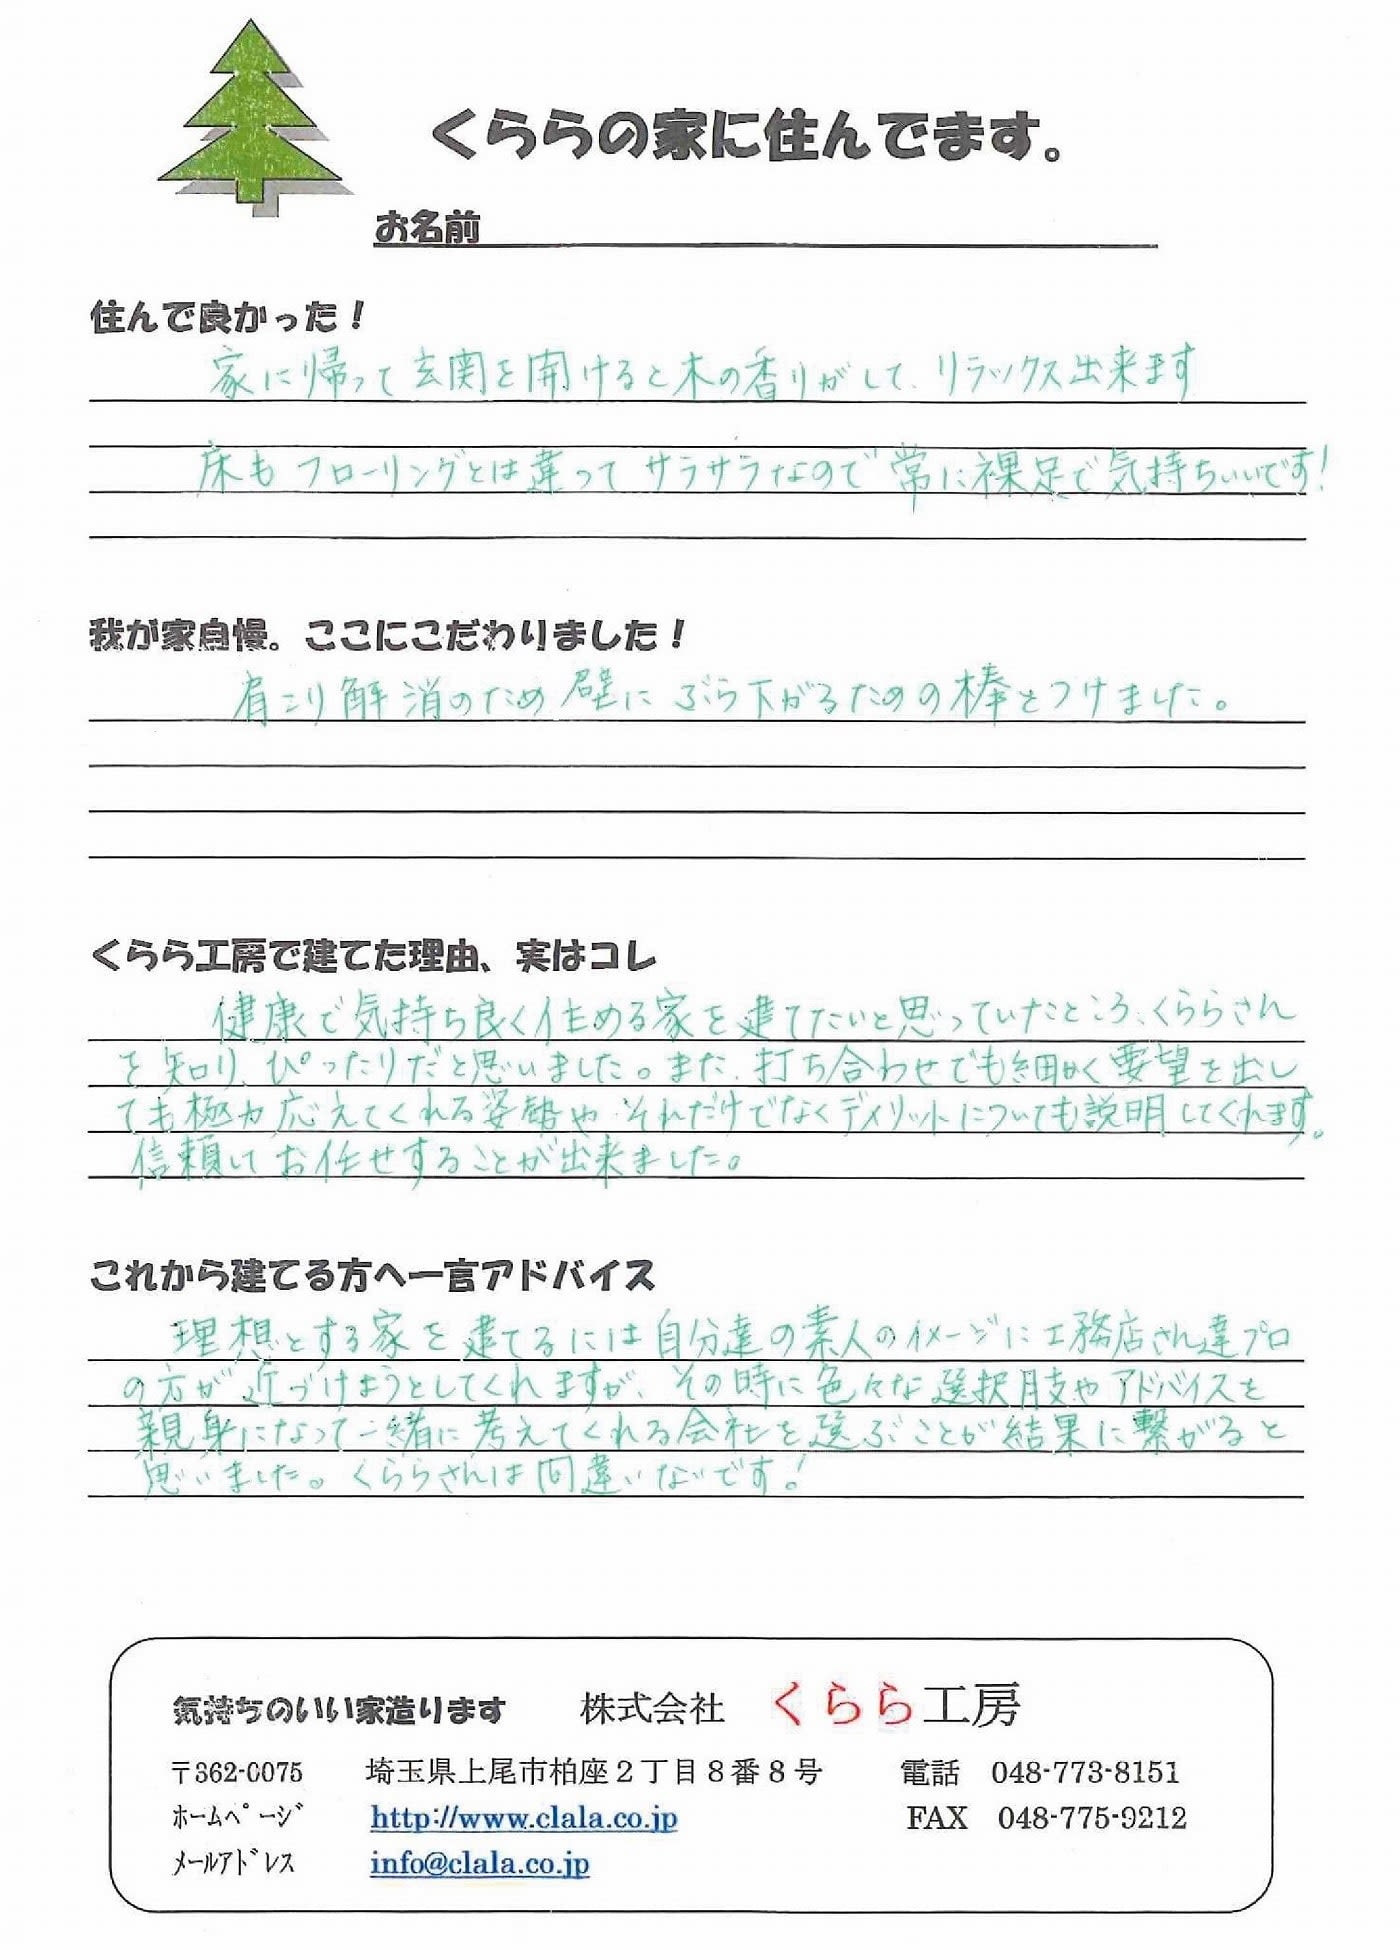 くららの家に住んでます。
お名前
住んで良かった！
家に帰って玄関を開けると木の香りがして、リラックス出来ます
床もフローリングとは違ってサラサラなので常に裸足で気持ちいいです！
我が家自慢。ここにこだわりました！
肩こり解消のため壁にぶら下がるための棒をつけました。
くらら工房で建てた理由、実はコレ
健康で気持ち良く住める家を建てたいと思っていたところ、くららさん
を知り、ぴったりだと思いました。また、打ち合わせでも細かく要望を出し
ても極力応えてくれる姿勢や、それだけでなくデメリットについても説明してくれます。
信頼してお任せすることが出来ました。
これから建てる方へ一言アドバイス
理想とする家を建てるには自分達の素人のイメージに工務店さん達プロ
の方が近づけようとしてくれますが、その時に色々な選択肢やアドバイスを
親身になって一緒に考えてくれる会社を選ぶことが結果に繋がると
思いました。くららさんは間違いないです！
気持ちのいい家造ります　株式会社　くらら工房
〒362-0075　埼玉県上尾市柏座２丁目８番８号　電話　048-773-8151
ﾎｰﾑﾍﾟｰｼﾞ　http://www.clala.co.jp　FAX　048-775-9212
ﾒｰﾙｱﾄﾞﾚｽ　info@clala.co.jp